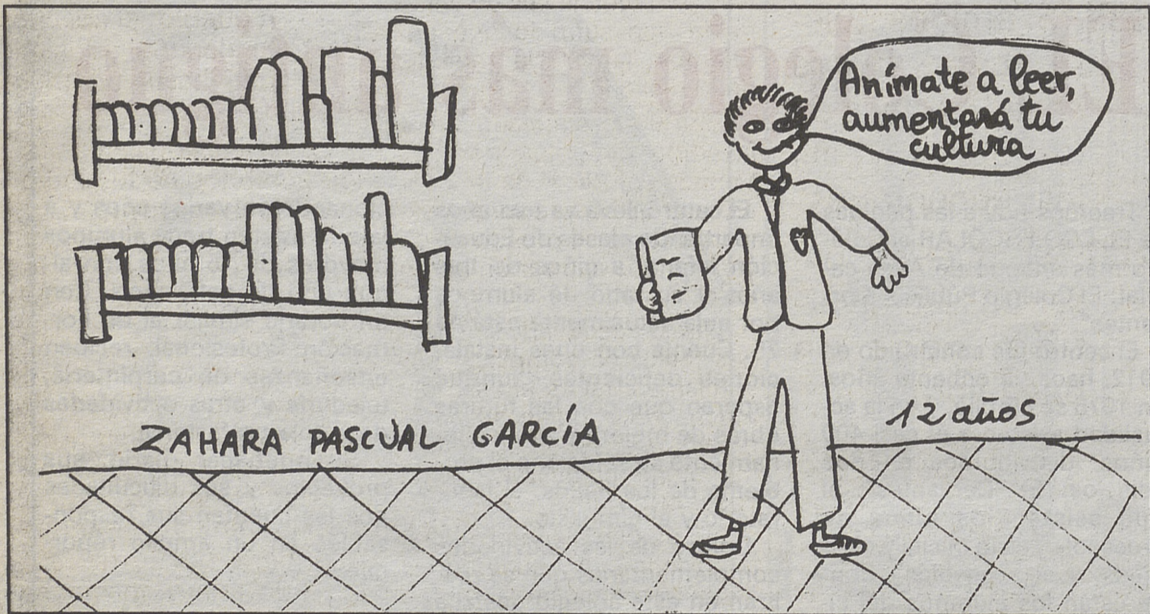 Anímate a leer,
aumentará tu
cultura
ZAHARA PASCUAL GARCÍA
12 años